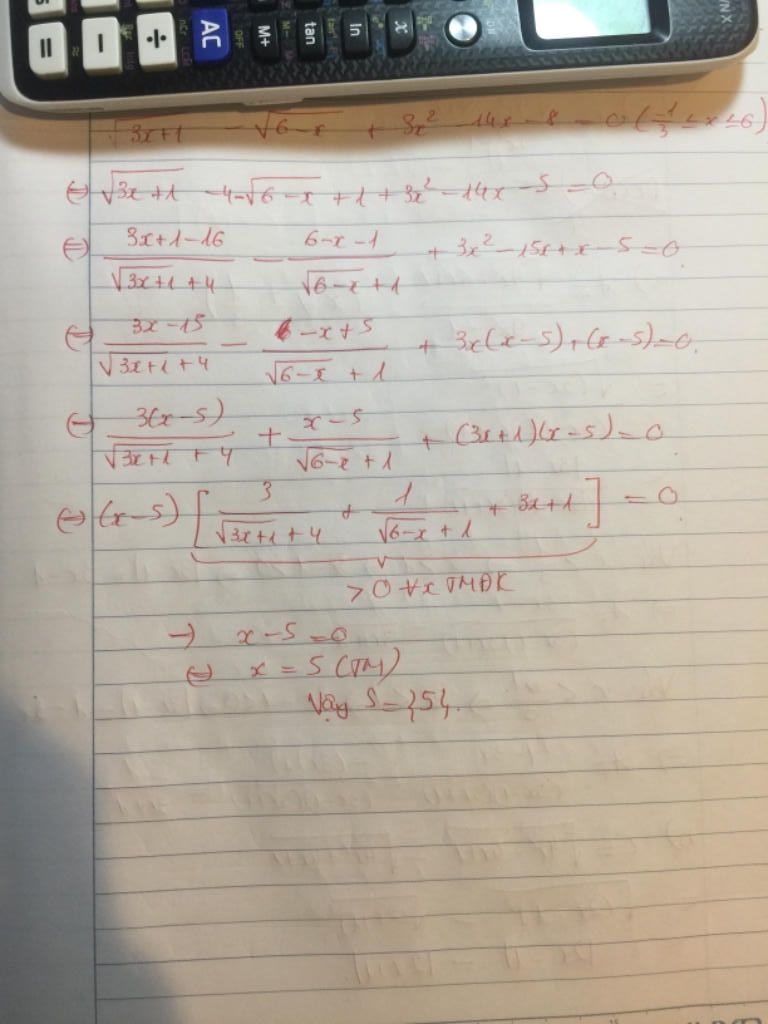 = − ÷ AC OFF M+ M− tan ln x
√(3x+1) − √(6−x) + 3x² − 14x − 8 = 0 (−1/3 ≤ x ≤ 6)
⇔ √(3x+1) − 4 − √(6−x) + 1 + 3x² − 14x − 5 = 0
⇔ (3x+1−16)/(√(3x+1) + 4) − (6−x−1)/(√(6−x) + 1) + 3x² − 15x + x − 5 = 0
⇔ (3x−15)/(√(3x+1) + 4) − (−x+5)/(√(6−x) + 1) + 3x(x−5) + (x−5) = 0
⇔ 3(x−5)/(√(3x+1) + 4) + (x−5)/(√(6−x) + 1) + (3x+1)(x−5) = 0
⇔ (x−5) [3/(√(3x+1) + 4) + 1/(√(6−x) + 1) + 3x+1] = 0
> 0 ∀x TMĐK
→ x − 5 = 0
⇔ x = 5 (TM)
Vậy S = {5}.